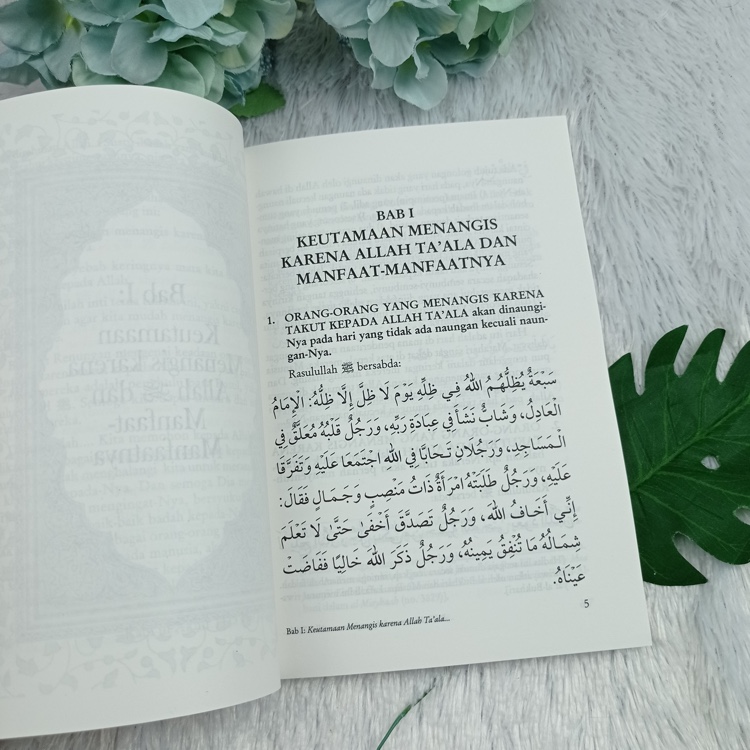 BAB I
KEUTAMAAN MENANGIS
KARENA ALLAH TA'ALA DAN
MANFAAT-MANFAATNYA
1. ORANG-ORANG YANG MENANGIS KARENA
TAKUT KEPADA ALLAH TA'ALA akan dinaungi-
Nya pada hari yang tidak ada naungan kecuali naun-
gan-Nya.
Rasulullah ﷺ bersabda:
سَبْعَةٌ يُظِلُّهُمُ اللّٰهُ فِي ظِلِّهِ يَوْمَ لَا ظِلَّ إِلَّا ظِلُّهُ: الْإِمَامُ
الْعَادِلُ، وَشَابٌّ نَشَأَ فِي عِبَادَةِ رَبِّهِ، وَرَجُلٌ قَلْبُهُ مُعَلَّقٌ فِي
الْمَسَاجِدِ، وَرَجُلَانِ تَحَابَّا فِي اللّٰهِ اجْتَمَعَا عَلَيْهِ وَتَفَرَّقَا
عَلَيْهِ، وَرَجُلٌ طَلَبَتْهُ امْرَأَةٌ ذَاتُ مَنْصِبٍ وَجَمَالٍ فَقَالَ:
إِنِّي أَخَافُ اللّٰهَ، وَرَجُلٌ تَصَدَّقَ أَخْفَى حَتَّى لَا تَعْلَمَ
شِمَالُهُ مَا تُنْفِقُ يَمِينُهُ، وَرَجُلٌ ذَكَرَ اللّٰهَ خَالِيًا فَفَاضَتْ
عَيْنَاهُ.
5
Bab I: Keutamaan Menangis karena Allah Ta'ala...
Bab I:
Keutamaan
Menangis karena
Allah ﷻ dan
Manfaat-
Manfaatnya